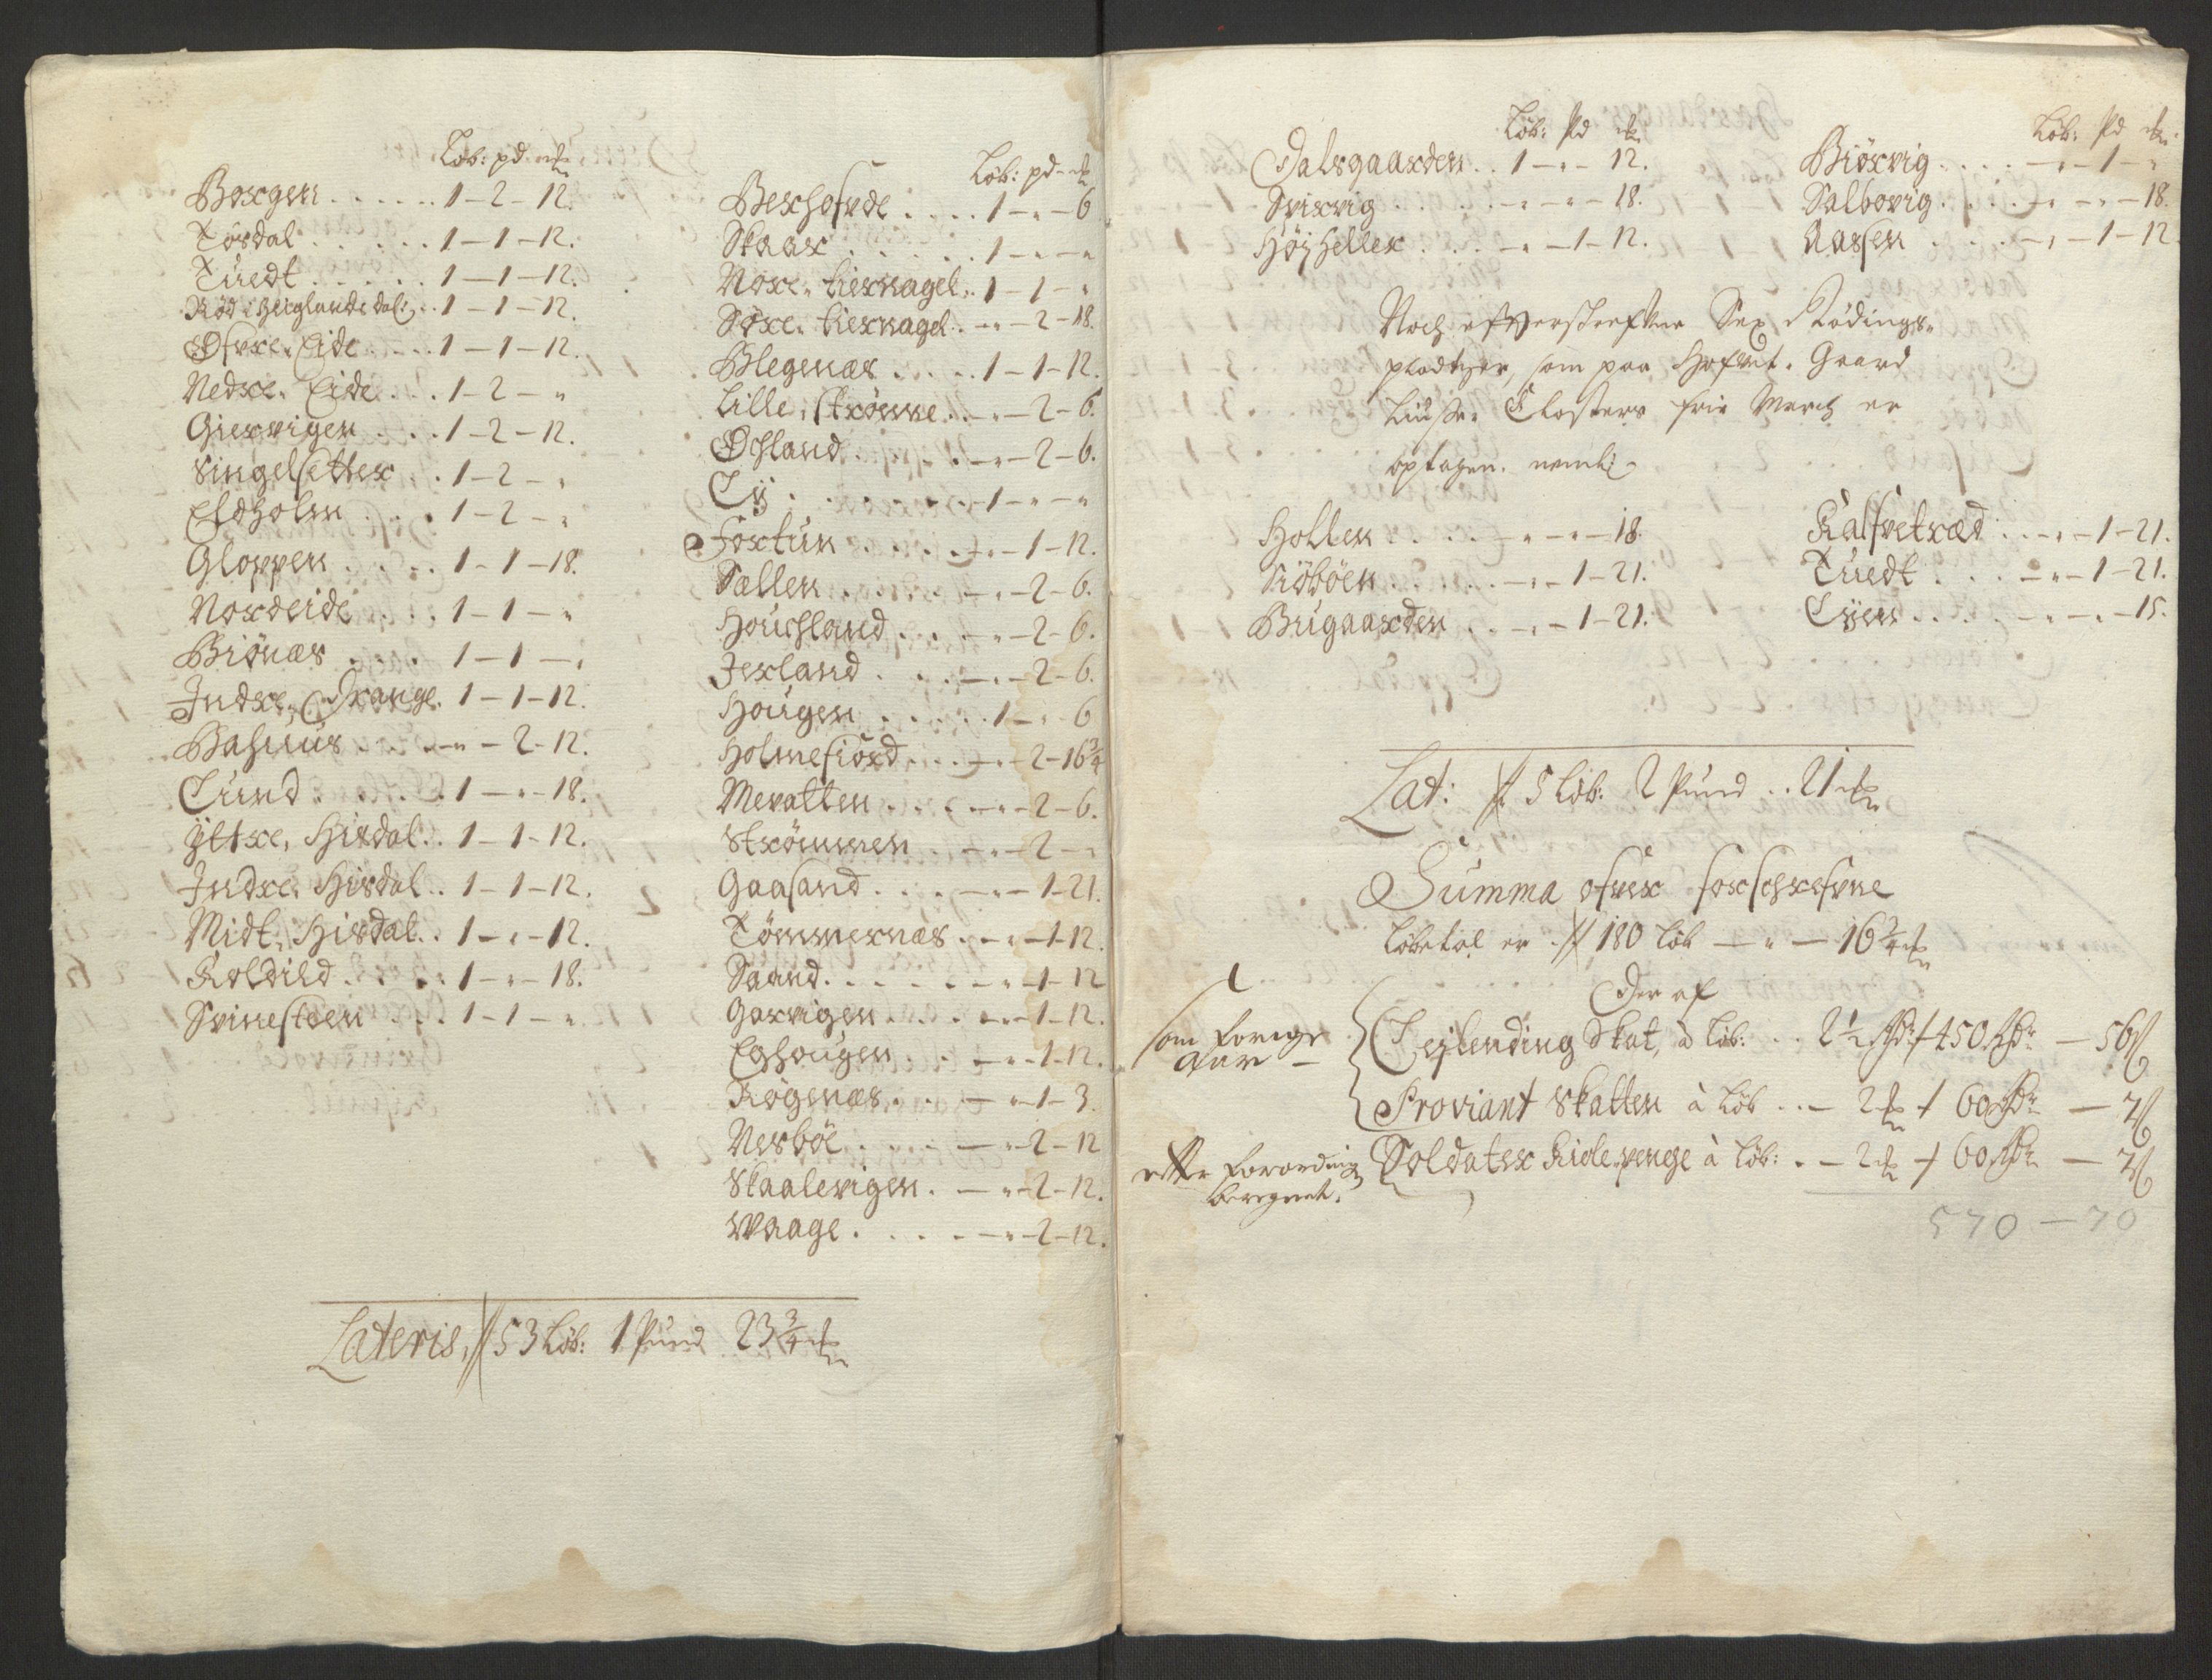 Løb: pd mk
Borgen . . . . . . 1 - 2 - 12.
Tösdal . . . . . . 1 - 1 - 12.
Tuedt . . . . . 1 - 1 - 12.
Röd i Heiglandsdal: . . 1 - 1 - 12.
Øfvre, Eide . . . . 1 - 1 - 12.
Nedre, Eide . . . 1 - 2 - "
Giervigen . . . . 1 - 2 - 12.
Singelsetter . . 1 - 2 - "
Eldholm . . . . 1 - 2 - "
Gloppen . . . . 1 - 1 - 18.
Nordeide . . . . 1 - 1 - "
Biönæs . . . . 1 - 1 - "
Indre, Drange . 1 - 1 - 12.
Bahuus . . . . - " - 2 - 12.
Lund . . . . . . 1 - " - 18.
Ÿttre, Hisdal . . 1 - 1 - 12.
Indre, Hisdal . . 1 - 1 - 12.
Midt, Hisdal . . 1 - " - 12.
Koldild . . . . 1 - " - 18.
Svinesteen . . . 1 - 1 - "
Løb: pd - mk
Berhofvde . . . . 1 - " - 6
Skaar . . . . . . 1 - " - "
Nore, Liernagel . 1 - 1 - "
Söre, Liernagel . . - " - 2 - 18.
Blegenæs . . . . . 1 - 1 - 12.
Lille, Strömme . . - " - 2 - 6.
Øchland . . . . . - " - 2 - 6.
Lÿ . . . . . . . 1 - " - "
Fortun . . . . . . - " - 1 - 12.
Sællen . . . . . . - " - 2 - 6.
Houchland . . . . - " - 2 - 6.
Jerland . . . . - " - 2 - 6.
Hougen . . . . . . 1 - " - 6
Holmefiord . . . - " - 2 - 16 3/4
Mevatten . . . . - " - 2 - 6.
Strömmen . . - " - 2 - "
Gaasand . . . . - " - 1 - 21.
Tömmernæs . . - " - 1 - 12.
Saand . . . . . . - " - 1 - 12
Garvigen . . . . . - " - 1 - 12.
Eghougen . . . - " - 1 - 12.
Rögenæs . . . - " - 1 - 3.
Nesböe . . . . - " - 2 - 12
Skaalevigen . - " - 2 - 12.
Waage . . . . . - " - 2 - 12.
Lateris, // 53 Løb: 1 Pund 23 3/4 mk
Løb: Pd mk
Dalsgaarden . . 1 - " - 12.
Svirvig . . . . . - " - " - 18.
Höÿheller . . . - " - 1 - 12.
Løb: Pd mk
Biörvig . . . . . - " - 1 - "
Salbovig . . . . - " - " - 18.
Aassen . . . . - " - 1 - 12
Noch efterskrefne Sex Rödings-
pladtzer, som paa Hofvet. Gaard
Liusse, Closters frie March er
optagen. nemlig
Hollen . . . . - " - " - 18.
Siöböen . . . . . - " - 1 - 21.
Bugaarden . . - " - 1 - 21.
Kalfvetræd . . . - " - 1 - 21.
Tuedt . . . - " - 1 - 21.
Lÿen . . . . . - " - " - 15.
Lat: // 5 Løb: 2 Pund . . 21 mk
Summa ofver forschrefvne
Løbetal er // 180 Løb - " - 16 3/4 mk
Der af
som forige
Aar -
Leilending Skat, à Løb: . . 2 1/2 Rdr / 450 Rdr - 56 ß
Proviant Skatten à Løb . . - 2 mk / 60 Rdr - 7 ß
efter forordning
beregnet.
Soldater Kiole, penge à Løb: . - 2 mk / 60 Rdr - 7 ß
570 - 70